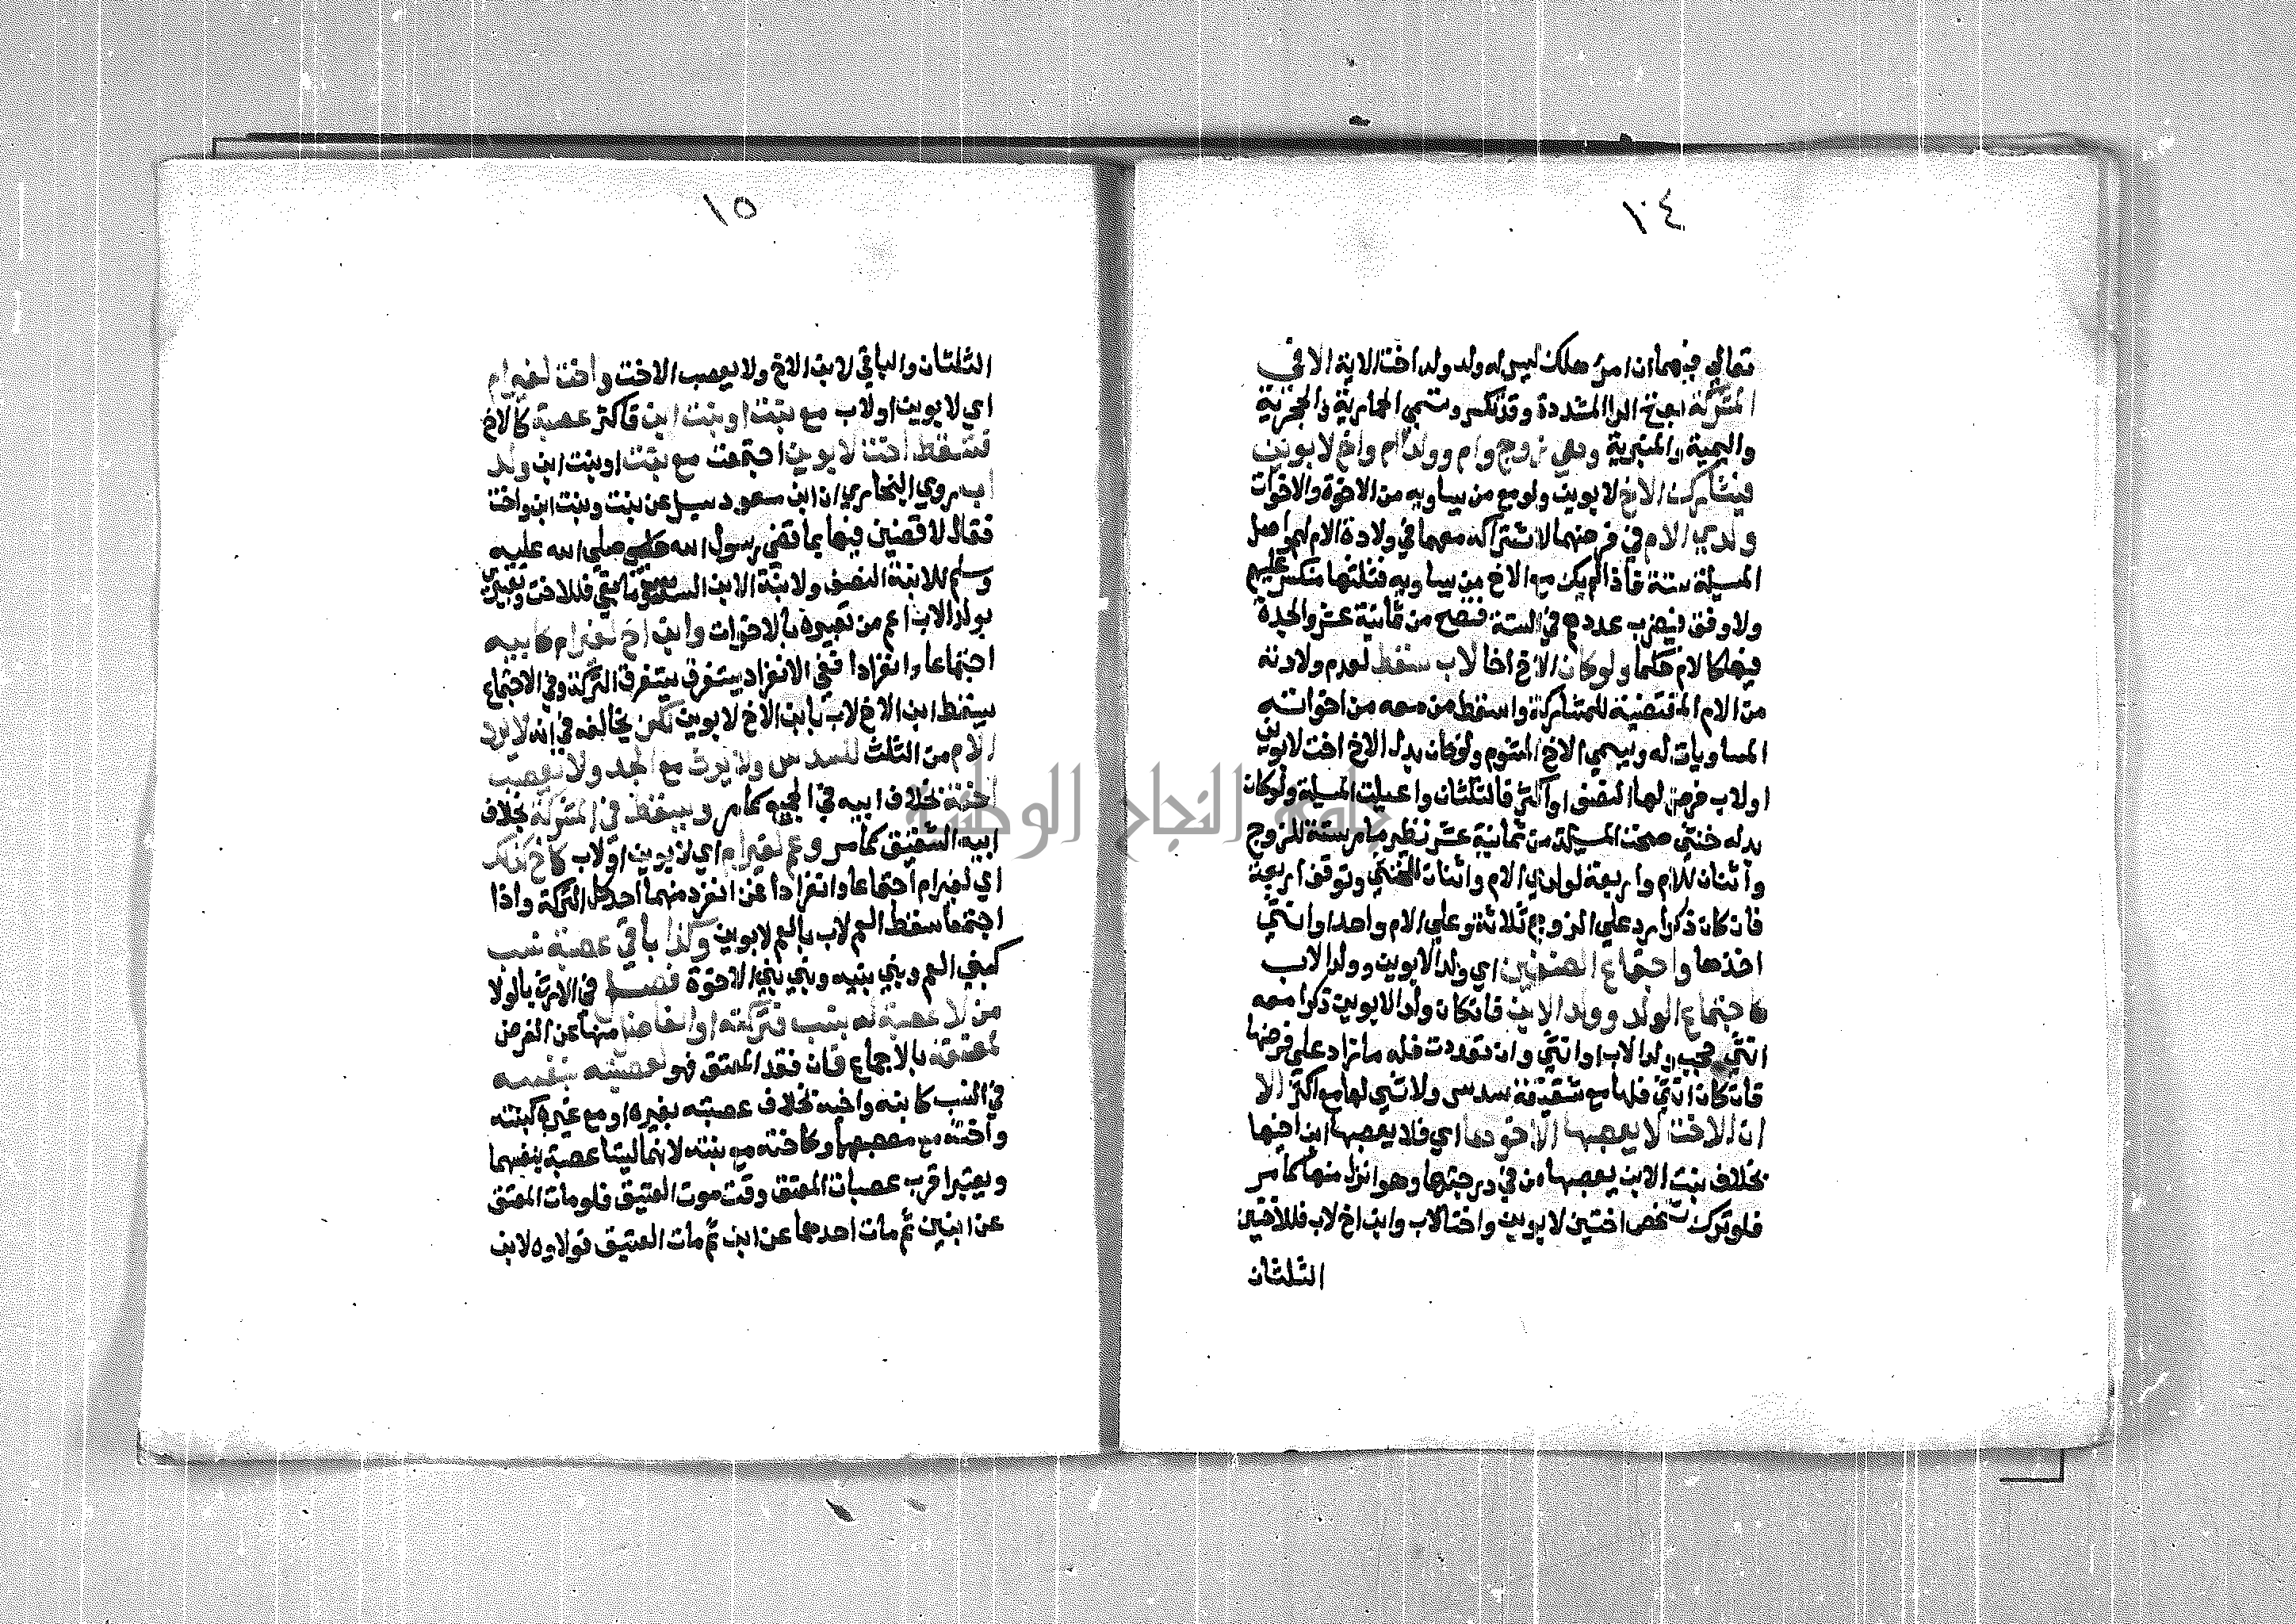 ١٠٤
تعالي فيهما ان امرؤ هلك ليس له ولد وله اخت الاية الا في
المشركة بفتح الرا المشددة وقد تكسر وتسمي الحمارية والحجرية
واليمية والمنبرية وهي زوج وام وولدا ام واخ لابوين
فيشارك الاخ لابوين ولو مع من يساويه من الاخوة والاخوات
ولدي الام في فرضهما لاشتراكه معهما في ولادة الام لهم واصل
المسيلة ستة فاذا لم يكن مع الاخ من يساويه فثلثها منكسر عليهم
ولا وفق فيضرب عددهم في الستة فتصح من ثمانية عشر والجدة
فيها كالام حكما ولو كان الاخ اخا لاب سقط لعدم ولادته
من الام المقتضية للمشاركة واسقط من معه من اخواته
المساويات له ويسمي الاخ المشوم ولو كان بدل الاخ اخت لابوين
او لاب فرض لها النصف او اكثر فالثلثان واعيلت المسيلة ولو كان
بدله خنثي صحت المسيلة من ثمانية عشر نظير ما مر ستة للزوج
واثنان للام واربعة لولدي الام واثنان للخنثي وتوقف اربعة
فان كان ذكرا رد علي الزوج ثلاثة وعلي الام واحد او انثي
اخذها واجتماع الصنفين اي ولد الابوين وولد الاب
كاجتماع الولد وولد الابن فان كان ولد الابوين ذكرا معه
انثي حجب ولد الاب او انثي وان تعددت فله ما زاد علي فرضها
فان كان انثي فلها مع شقيقة سدس ولا شي لها مع اكثر الا
ان الاخت لا يعصبها الا اخوها اي فلا يعصبها ابن اخيها
بخلاف بنت الابن يعصبها من في درجتها وهو انزل منها كما مر
فلو ترك شخص اختين لابوين واختا لاب وابن اخ لاب فللاختين
الثلثان
١٥
الثلثان والباقي لابن الاخ ولا يعصب الاخت واخت لغير ام
اي لابوين او لاب مع بنت او بنت ابن فاكثر عصبة كالاخ
فتسقط اخت لابوين اجتمعت مع بنت او بنت ابن ولد
اب روي البخاري ان ابن مسعود سيل عن بنت وبنت ابن واخت
فقال لاقضين فيها بما قضي رسول الله صلي الله عليه
وسلم للابنة النصف ولابنة الابن السدس وما بقي فللاخت وتعبيري
بولد الاب اعم من تعبيره بالاخوات وابن اخ لغير ام كابيه
اجتماعا وانفرادا ففي الانفراد يستغرق التركة وفي الاجتماع
يسقط ابن الاخ لاب بابن الاخ لابوين لكن يخالفه في انه لا يرد
الام من الثلث للسدس ولا يرث مع الجد ولا يعصب
اخته بخلاف ابيه في الجميع كما مر ويسقط في المشركة بخلاف
ابيه الشقيق كما مر وعم لغير ام اي لابوين او لاب كاخ كذلك
اي لغير ام اجتماعا وانفرادا فمن انفرد منهما اخذ كل التركة واذا
اجتمعا سقط العم لاب بالعم لابوين وكذا باقي عصبة نسب
كبني العم وبني بنيه وبني بني الاخوة فصل في الارث بالولا
من لا عصبة له بنسب فتركته او الفاضل منها عن الفرض
لمعتقه بالاجماع فان فقد المعتق فهو لعصبته بنفسه
في النسب كابنه واخيه بخلاف عصبته بغيره او مع غيره كبنته
واخته مع معصبهما وكاخته مع بنته لانهما ليستا عصبة بنفسهما
ويعتبر اقرب عصبات المعتق وقت موت العتيق فلو مات المعتق
عن ابنين ثم مات احدهما عن ابن ثم مات العتيق فولاوه لابن
جامعة النجاح الوطنية